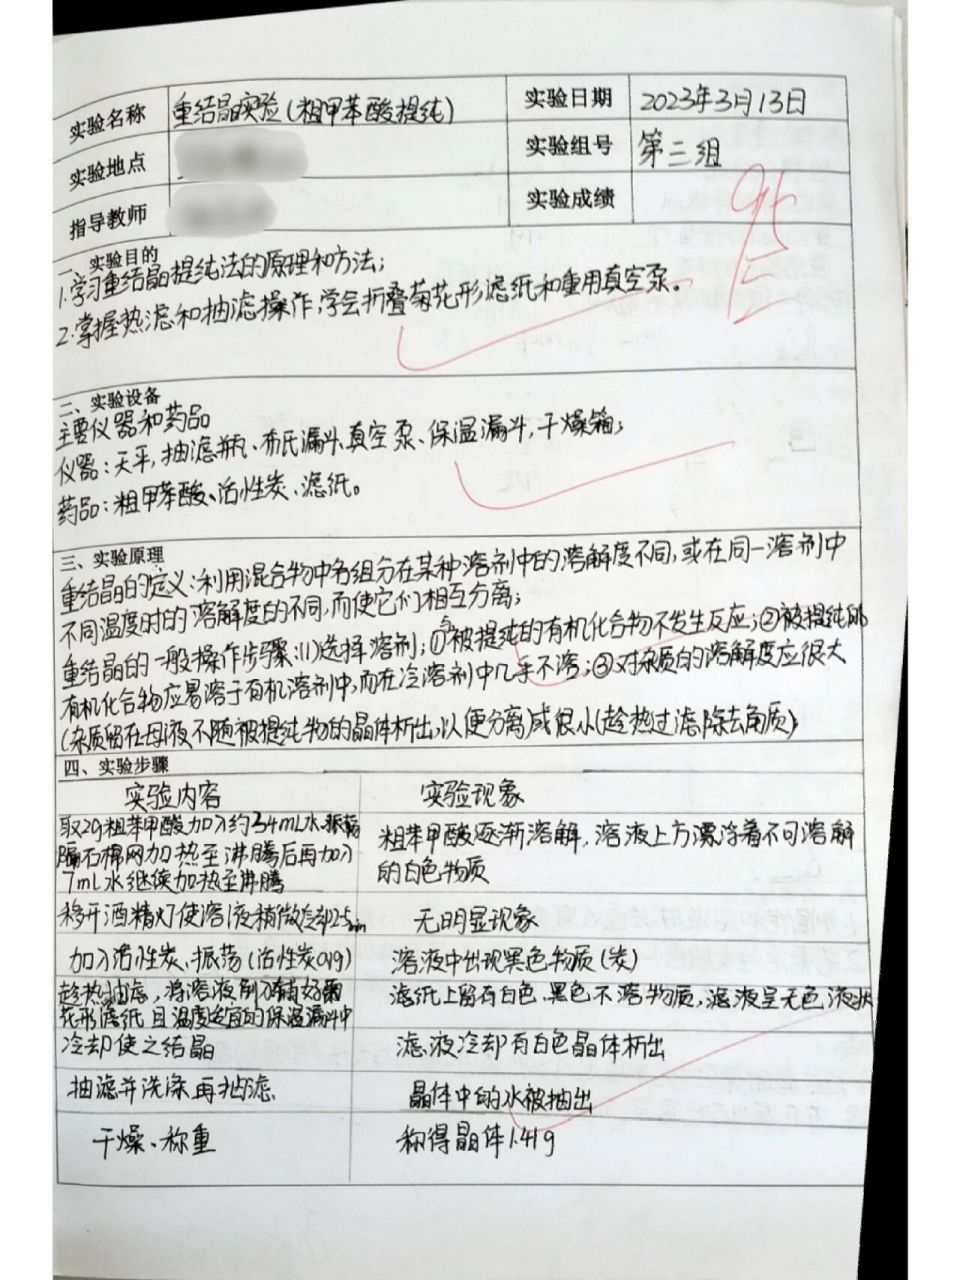 实验名称 重结晶实验(粗甲苯酸提纯) 实验日期 2023年3月13日
实验地点 实验组号 第二组
指导教师 实验成绩 95
一、实验目的
1.学习重结晶提纯法的原理和方法;
2.掌握热滤和抽滤操作,学会折叠菊花形滤纸和重用真空泵。
二、实验设备
主要仪器和药品
仪器:天平,抽滤瓶、布氏漏斗、真空泵、保温漏斗,干燥箱;
药品:粗甲苯酸、活性炭、滤纸。
三、实验原理
重结晶的定义:利用混合物中各组分在某种溶剂中的溶解度不同,或在同一溶剂中
不同温度时的溶解度的不同,而使它们相互分离;
重结晶的一般操作步骤:(1)选择溶剂;①与被提纯的有机化合物不发生反应;②被提纯的
有机化合物应易溶于有机溶剂中,而在冷溶剂中几乎不溶;③对杂质的溶解度应很大
(杂质留在母液不随被提纯物的晶体析出,以便分离)或很小(趁热过滤除去角质);
四、实验步骤
实验内容 实验现象
取2g粗苯甲酸加入约34mL水,振荡
隔石棉网加热至沸腾后再加入
7mL水继续加热至沸腾
粗苯甲酸逐渐溶解,溶液上方漂浮着不可溶解
的白色物质
移开酒精灯使溶液稍微冷却2-5min 无明显现象
加入活性炭、振荡(活性炭0.1g) 溶液中出现黑色物质(炭)
趁热抽滤,将溶液倒入有好菊
花形滤纸且温度适宜的保温漏斗中
滤纸上留有白色、黑色不溶物质,滤液呈无色液状
冷却使之结晶 滤液冷却有白色晶体析出
抽滤并洗涤再抽滤 晶体中的水被抽出
干燥、称重 称得晶体1.41g